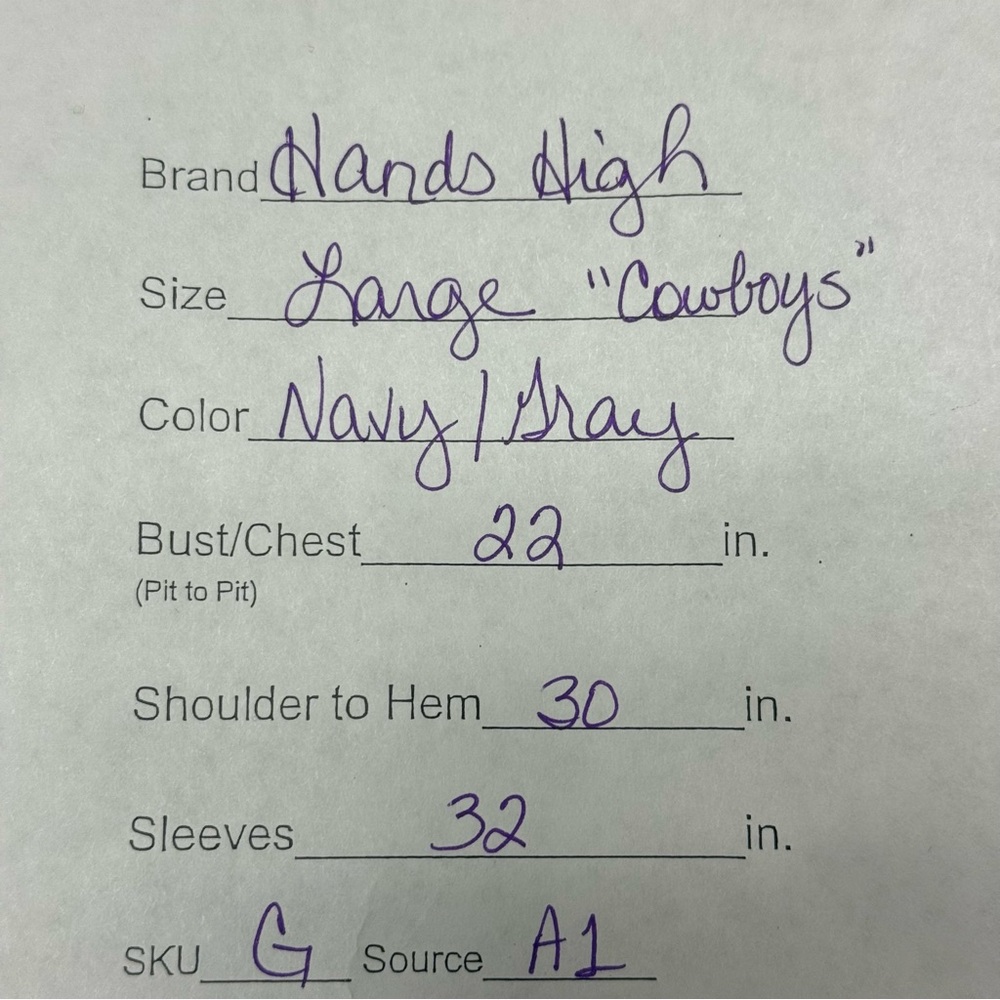 Brand Hands High
Size Large "Cowboys"
Color Navy/Gray
Bust/Chest 22 in.
(Pit to Pit)
Shoulder to Hem 30 in.
Sleeves 32 in.
SKU G Source A1